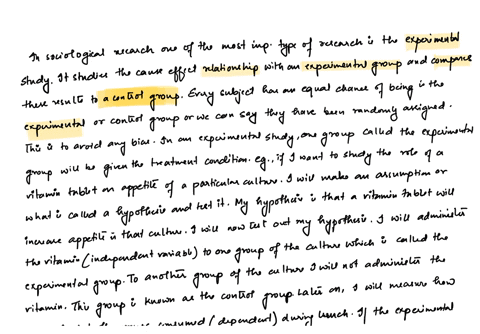 In sociological research one of the most imp. type of research is the experimental
study. It studies the cause effect relationship with an experimental group and compare
there results to a control group. Every subject has an equal chance of being in the
experimental or control group or we can say they have been randomly assigned.
This is to avoid any bias. In an experimental study, one group called the experimental
group will be given the treatment condition. eg., if I want to study the role of a
vitamin tablet on appetite of a particular culture. I will make an assumption or
what is called a hypothesis and test it. My hypothesis is that a vitamin tablet will
increase appetite in that culture. I will now test out my hypothesis. I will administer
the vitamin (independent variable) to one group of the culture which is called the
experimental group. To another group of the culture I will not administer the
vitamin. This group is known as the control group. Later on, I will measure how
consumed (dependent) during lunch. If the experimental